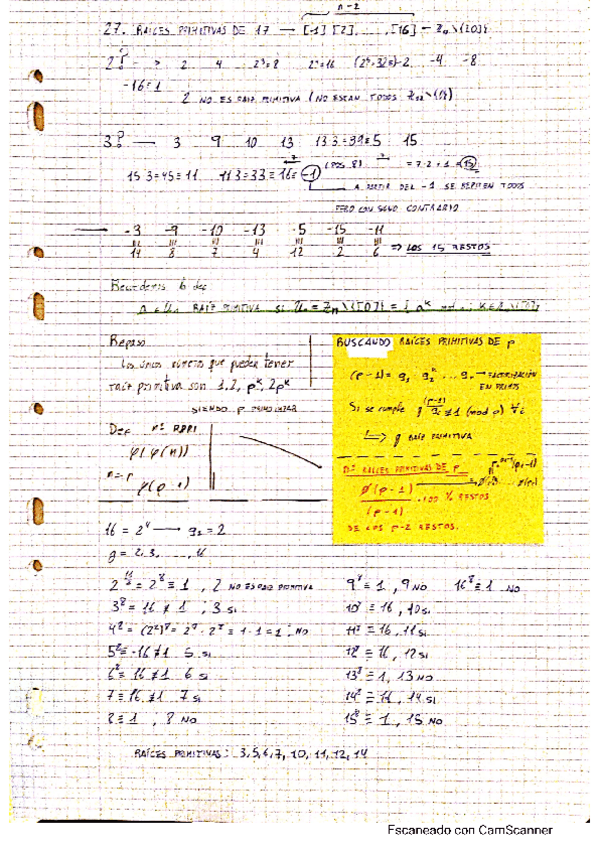 n-2
27. RAICES PRIMITIVAS DE 17 → [-1] [2], ..., [16] - Zn \ {[0]}
2 → 2 4 2³=8 2⁴=16 (2⁵=32≡)-2 -4 -8
-16≡1
2 NO ES RAIZ PRIMITIVA (NO ESTAN TODOS
3 → 3 9 10 13 13·3=39≡5 15
15·3=45≡11 11·3=33≡16≡-1 (POS 8) = 7·2+1=15
A PARTIR DEL -1 SE REPITEN TODOS
PERO CON SIGNO CONTRARIO
→ -3 -9 -10 -13 -5 -15 -11
14 8 7 4 12 2 6 ⇒ LOS 15 RESTOS
RAIZ PRIMITIVA SI Un = Zn \ {[0]} =
Repaso
Los únicos números que pueden tener
raíz primitiva son 1, 2, pᵏ, 2pᵏ
SIENDO P PRIMO IMPAR
Def nº RPRI
φ(φ(n))
n=p
φ(p-1)
BUSCANDO RAÍCES PRIMITIVAS DE p
(p-1) = q₁ q₂ ... qₙ → FACTORIZACIÓN
EN PRIMOS
Si se cumple g^((p-1)/qᵢ) ≢ 1 (mod p) ∀i
↳ g RAIZ PRIMITIVA
Nº RAÍCES PRIMITIVAS DE P
φ(p-1)/(p-1) · 100 % RESTOS
DE LOS P-2 RESTOS.
16 = 2⁴ → q₁ = 2
g = 2, 3, ..., 16
2^(16/2) = 2⁸ ≡ 1, 2 NO ES RAIZ PRIMITIVA
3⁸ = 16 ≢ 1, 3 SI
4⁸ = (2²)⁸ = 2⁸·2⁸ = 1·1 = 1, NO
5⁸ ≡ -16 ≢ 1 5 SI
6⁸ ≡ 16 ≢ 1 6 SI
7 ≡ 16 ≢ 1 7 SI
8 ≡ 1, 8 NO
9⁸ ≡ 1, 9 NO 16⁸ ≡ 1 NO
10⁸ ≡ 16, 10 SI
11⁸ ≡ 16, 11 SI
12⁸ ≡ 16, 12 SI
13⁸ ≡ 1, 13 NO
14⁸ ≡ 16, 14 SI
15⁸ ≡ 1, 15 NO
RAÍCES PRIMITIVAS: 3, 5, 6, 7, 10, 11, 12, 14
Escaneado con CamScanner